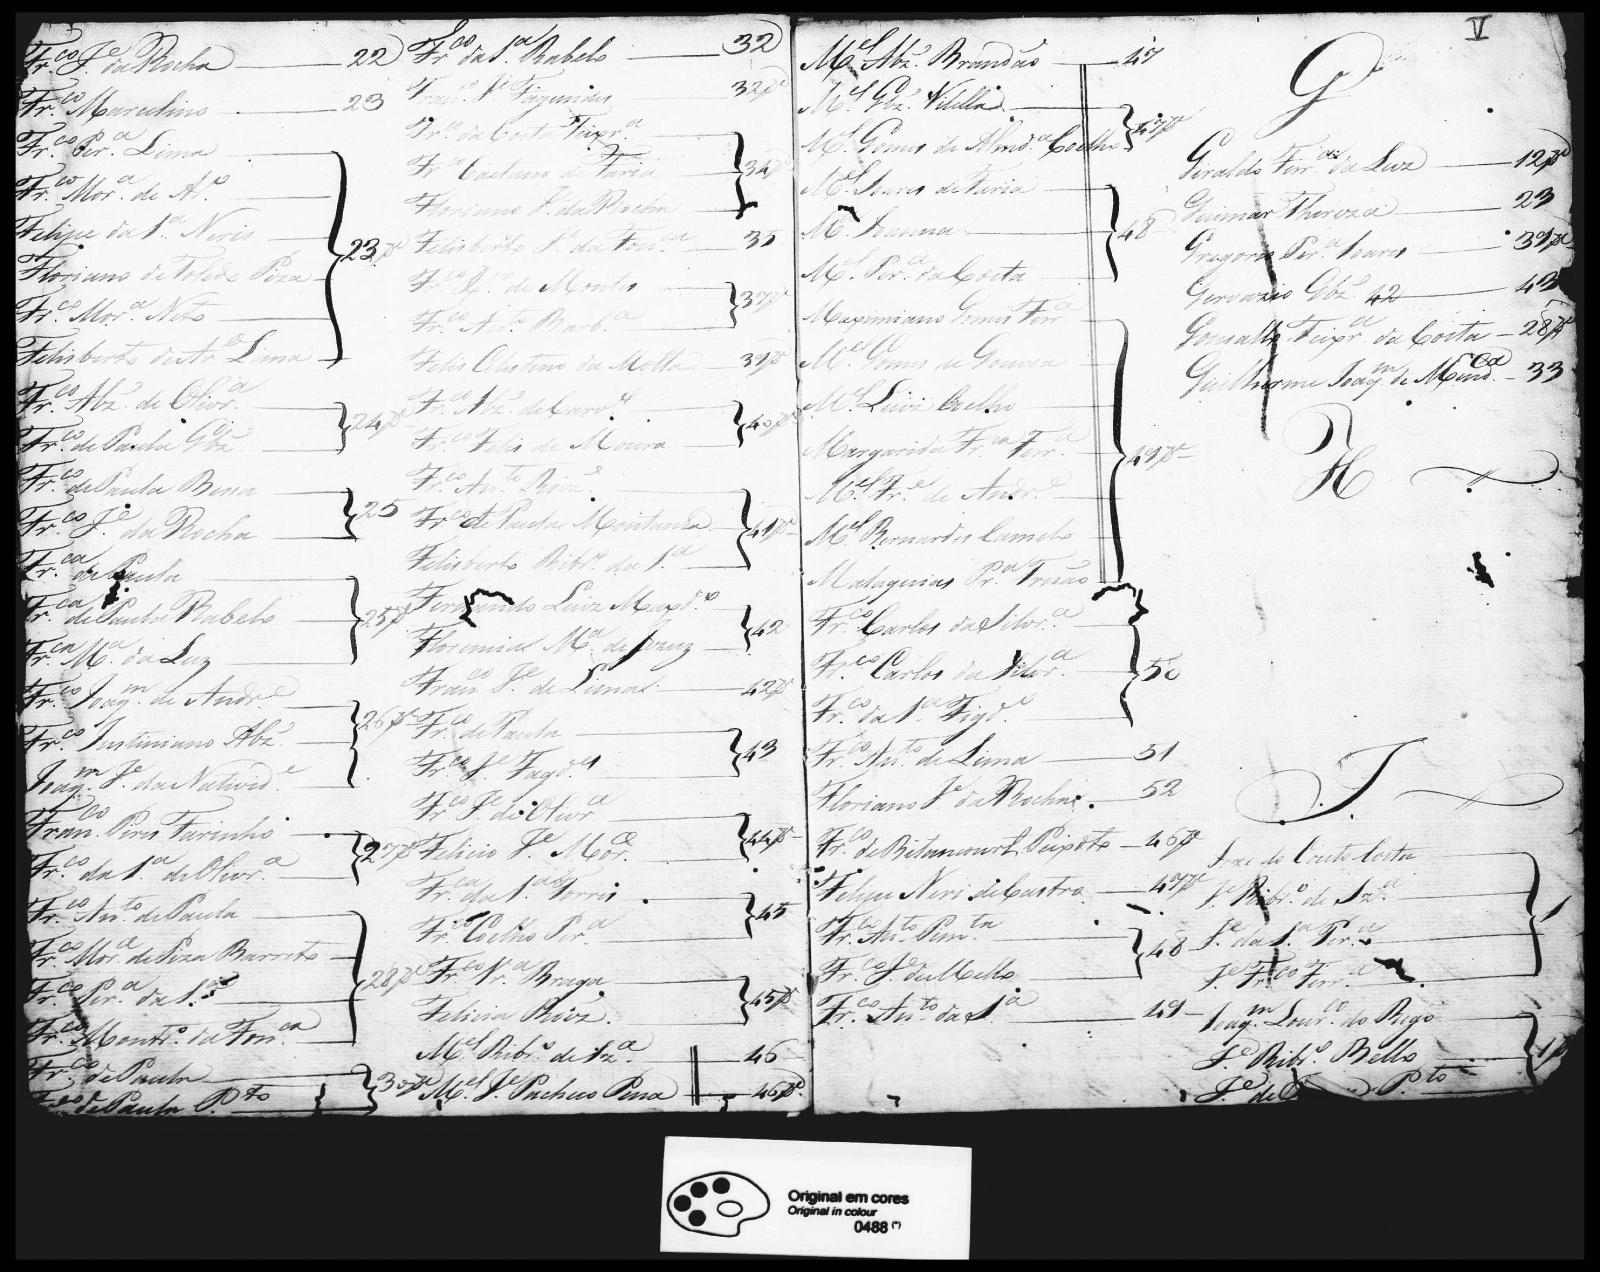 Fr.co J.e da Rocha 22
Fr.co Marcelino 23
Fr.co Per.a Lima
Fr.co Mor.a de Ar.o
Felipe da S.a Neris
Floriano de Toledo Piza 23
Fr.co Mor.a Neto
Felisberto de Lima
Fr.co Abz.' de Olivr.a
Fr.co de Paula Gbz.' 24
Fr.co de Paula
Fr.co J.e da Rocha 25
Fr.ca de Paula
Fr.ca de Paula Rabelo 25
Fr.ca M.a da Luz
Fr.co Joaq.m de Andr.e
Fr.co Justiniano Abz.' 26
Joaq.m J.e da Nativid.e
Fran.co Pires Farinho
Fr.co da S.a de Olivr.a 27
Fr.co An.to de Paula
Fr.co Mor.a de Piza Barreto
Fr.co Per.a da S.a 28
Fr.co Montr.o da Fon.ca
Fr.co de Paula 30
Fr.co de Paula P.to
Fr.co da S.a Rabelo 32
Fran.co J.e Fagundes 32
Fr.co da Costa Teixr.a
Fr.co Caetano de Faria 34
Floriano J.e da Rocha
Felisberto J.e da Fon.ca 35
Fr.co de Montes
Fr.co An.to Barb.a 37
Felis Celestino da Motta 39
Fr.co Abz.' de Carv.o
Fr.co Felis de Moura 40
Fr.co An.to
Fr.co de Paula Montanha 41
Felisberto Ribr.o da S.a
Fernando Luiz Maxd.o
Florencia M.a de Jesus 42
Fran.co J.e de Lima 42
Fr.co de Paula
Fr.co J.e Fagd.es 43
Fr.co J.e de Olivr.a
Felicio J.e Mor.a 44
Fr.ca da S.a Torres
Fr.co Coelho Per.a 45
Fr.co Braga
Felicia 45
M.el Ribr.o de Sz.a 46
M.el J.e Pacheco Pena 46
M.el Abz.' Brandão 47
M.el Gbz.' Vilella
M.el Gomes de Almd.a Coelho 47
M.el Soares de Faria
M.el 48
M.el Per.a da Costa
Maximiano Gomes Ferr.a
M.el Gomes de Gouvea
M.el Luiz Coelho
Margarida Fr.ca Ferr.a 49
M.el Fr.e de Andr.e
M.el Bernardes Camelo
Malaquias Pr.a
Fr.co Carlos da Silvr.a
Fr.co Carlos da Silvr.a 50
Fr.co da S.a Figd.o
Fr.co An.to de Lima 51
Floriano J.e da Rocha 52
Fr.co de Betancourt Peixoto 46
Felipe Neri de Castro 47
Fr.co An.to Pimn.ta
Fr.co J.e de Mello 48
Fr.co An.to da S.a 49
V
G
Giraldo Ferr.a da Luz 12
Guimar Thereza 23
Gregorio Per.a Soares 39
Gervazio Gbz.' 42 43
Gonsallo Teixr.a da Costa 28
Guilherme Joaq.m de Mend.ca 33
H
J
Joze do Couto Costa
J.e Ribr.o de Sz.a
J.e da S.a Per.a 1
J.e Fr.co Ferr.a
Joaq.m Lour.co do Rego
J.e Ribr.o Bello 1
J.e de P.to
Original em cores
Original in colour
0488 (*)